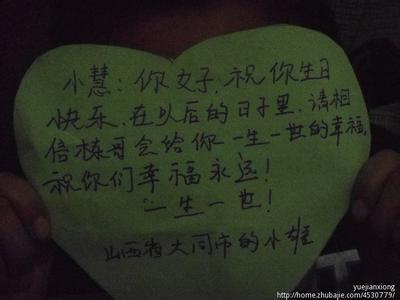 小慧:你好,祝你生日
快乐.在以后的日子里,请相
信栋哥会给你一生一世的幸福,
祝你们幸福永远!
一生一世!
山西省大同市的小雄
yuejianxiong
http://home.zhubajie.com/4530779/